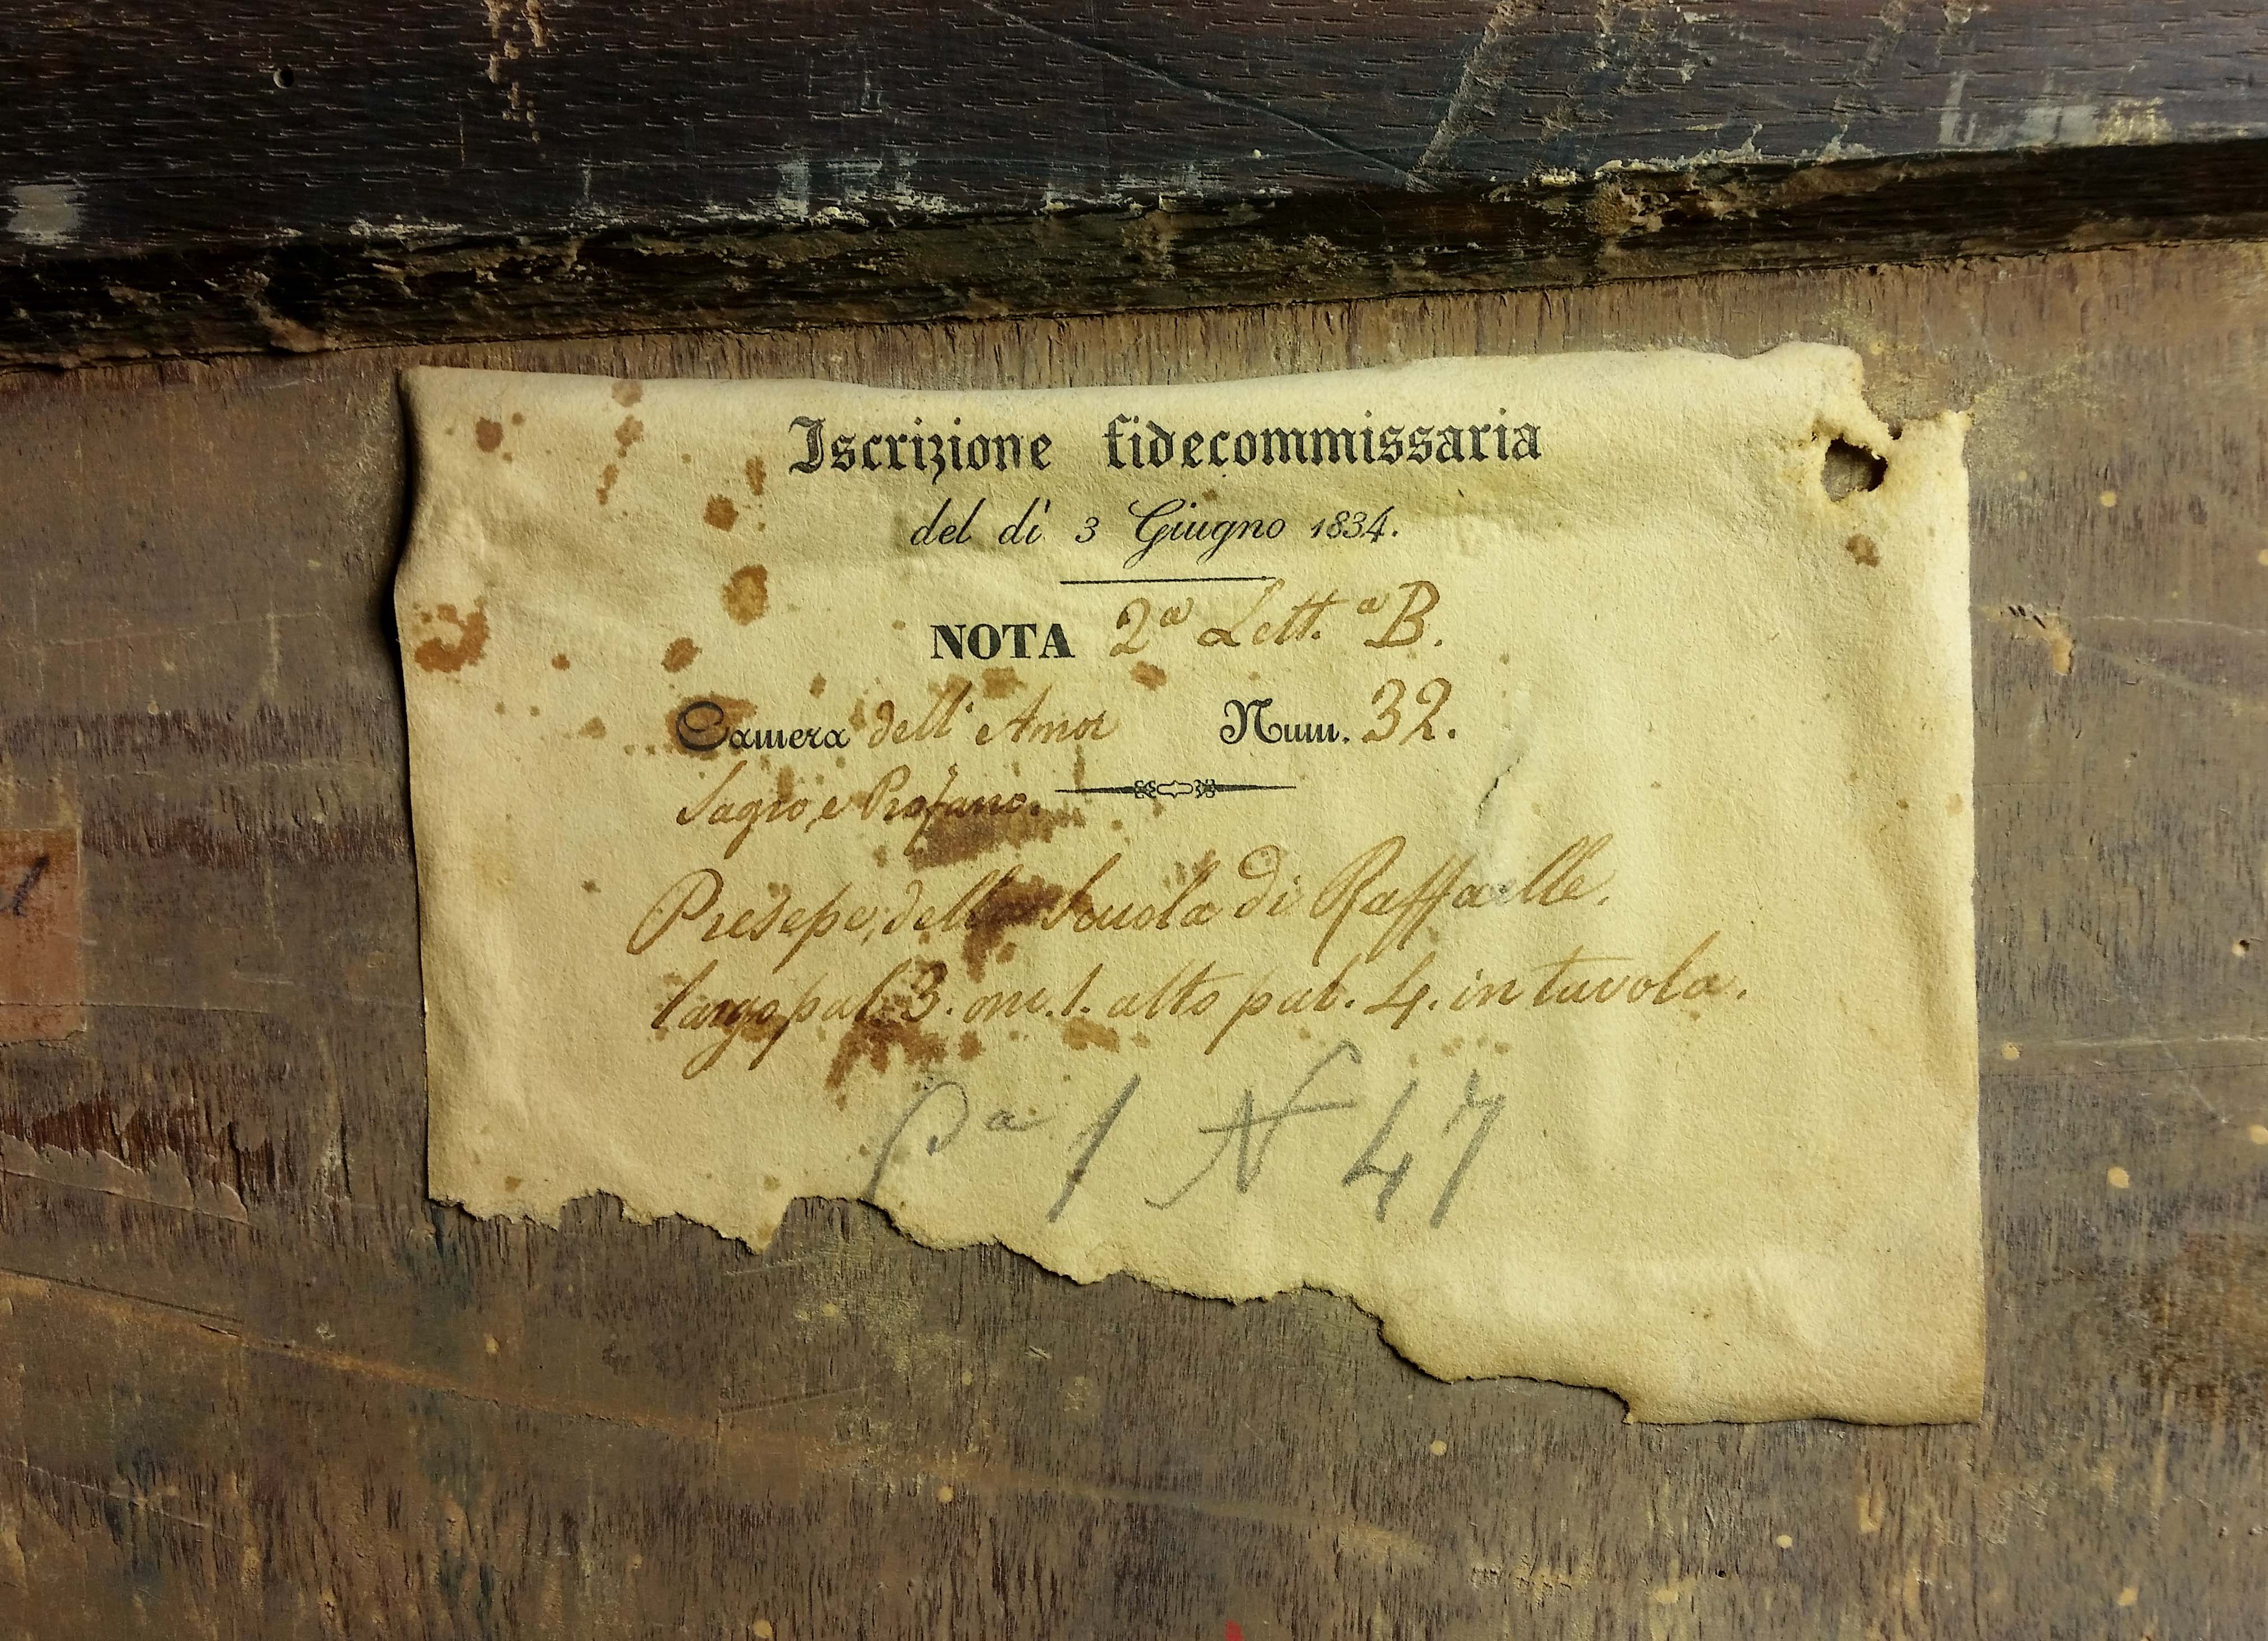 Iscrizione fidecommissaria
del dì 3 Giugno 1834.
NOTA 2ª Lett.ª B.
Camera dell' Amor Num. 32.
Sagro, e Profano.
Presepe, della Scuola di Raffaelle.
largo pal. 3. on. 1. alto pal. 4. in tavola.
Pª 1 N 47